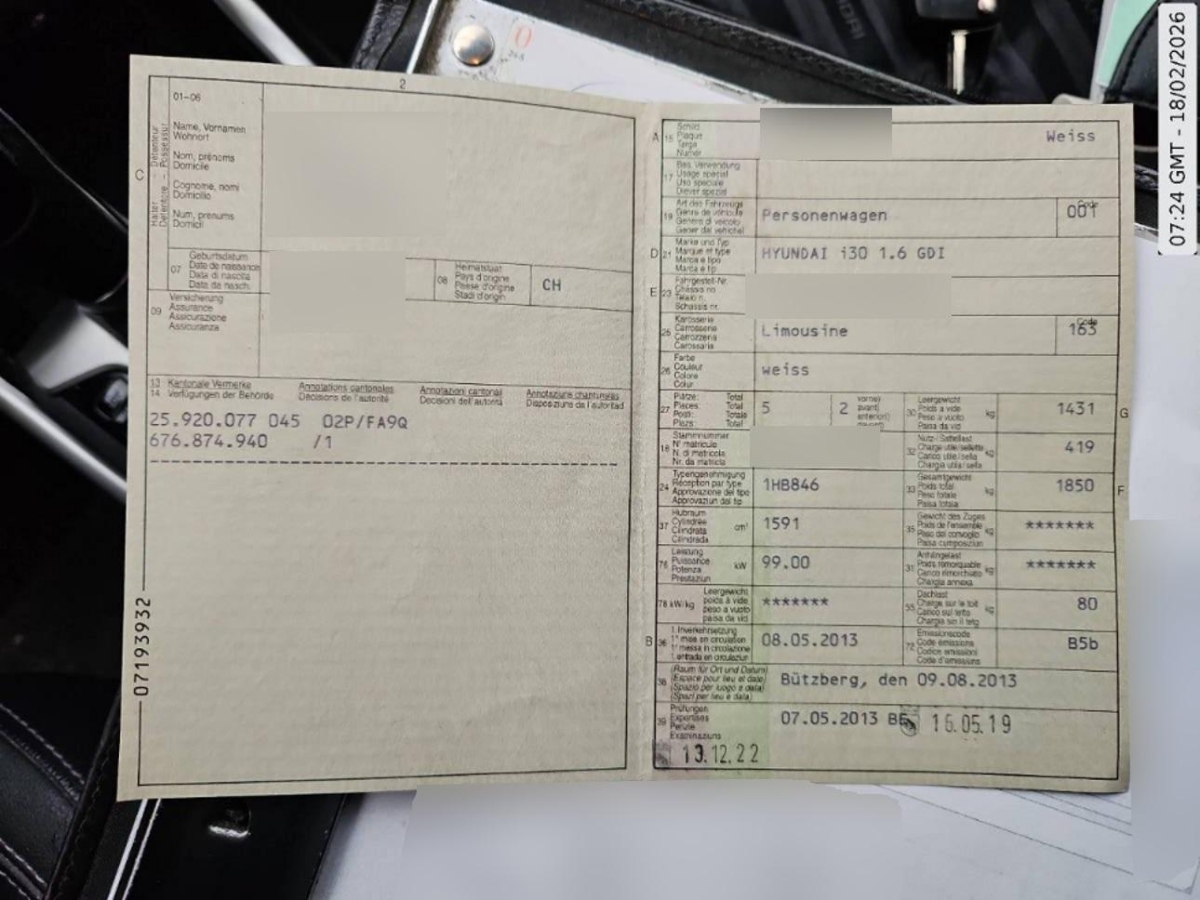 07:24 GMT - 18/02/2026
2
C
01-06
Halter - Détenteur
Detentore - Possessur
Name, Vornamen
Wohnort
Nom, prénoms
Domicile
Cognome, nomi
Domicilio
Num, prenums
Domicil
07
Geburtsdatum
Date de naissance
Data di nascita
Data da nasch.
08
Heimatstaat
Pays d'origine
Paese d'origine
Stadi d'origin
CH
09
Versicherung
Assurance
Assicurazione
Assicuranza
13
14
Kantonale Vermerke
Verfügungen der Behörde
Annotations cantonales
Décisions de l'autorité
Annotazioni cantonali
Decisioni dell'autorità
Annotaziuns chantunalas
Disposiziuns da l'autoritad
25.920.077 045 02P/FA9Q
676.874.940 /1
07193932
A
15
Schild
Plaque
Targa
Numer
Weiss
17
Bes. Verwendung
Usage spécial
Uso speciale
Diever spezial
19
Art des Fahrzeugs
Genre de véhicule
Genere di veicolo
Gener dal vehichel
Personenwagen
Code
001
D
21
Marke und Typ
Marque et type
Marca e tipo
Marca e tip
HYUNDAI i30 1.6 GDI
E
23
Fahrgestell-Nr.
Châssis no
Telaio n.
Schassis nr.
25
Karosserie
Carrosserie
Carrozzeria
Carossaria
Limousine
Code
163
26
Farbe
Couleur
Colore
Colur
weiss
27
Plätze: Total
Places: Total
Posti: Totale
Plazs: Total
5
2
vorne)
avant)
anteriori)
davant)
30
Leergewicht
Poids à vide
Peso a vuoto
Paisa da vid
kg
1431
G
18
Stammnummer
N° matricule
N. di matricola
Nr. da matricla
32
Nutz-/Sattellast
Charge utile/sellette
Carico utile/sella
Chargia utila/sella
kg
419
24
Typengenehmigung
Réception par type
Approvazione del tipo
Approvaziun dal tip
1HB846
33
Gesamtgewicht
Poids total
Peso totale
Paisa totala
kg
1850
F
37
Hubraum
Cylindrée
Cilindrata
Cilindrada
cm³
1591
35
Gewicht des Zuges
Poids de l'ensemble
Peso del convoglio
Paisa cumposiziun
kg
*******
76
Leistung
Puissance
Potenza
Prestaziun
kW
99.00
31
Anhängelast
Poids remorquable
Carico rimorchiato
Chargia annexa
kg
*******
78 kW/kg
Leergewicht
poids à vide
peso a vuoto
paisa da vid
*******
55
Dachlast
Charge sur le toit
Carico sul tetto
Chargia sin il tetg
kg
80
B
36
1. Inverkehrsetzung
1re mise en circulation
1a messa in circolazione
1. entrada en circulaziun
08.05.2013
72
Emissionscode
Code émissions
Codice emissioni
Code d'emissiuns
B5b
38
(Raum für Ort und Datum)
(Espace pour lieu et date)
(Spazio per luogo e data)
(Spazi per lieu e data)
Bützberg, den 09.08.2013
39
Prüfungen
Expertises
Perizie
Examinaziuns
07.05.2013 BE
16.05.19
13.12.22